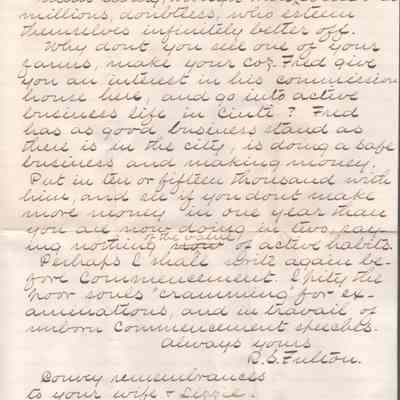 millions, doubtless, who esteem
themselves infinitely better off.
Why dont you sell one of your
farms, make your coz. Fred give
you an interest in his commission
house here, and go into active
business life in Cinti? Fred
has as good business stand as
there is in the city, is doing a safe
business and making money.
Put in ten or fifteen thousand with
him, and see if you dont make
more money in one year than
you are now doing in two, pay-
ing nothing now of active habits.
of the value
Perhaps I shall write again be-
fore Commencement. I pity the
poor souls "cramming" for ex-
aminations, and in travail of
unborn Commencement speeches.
Always yours
R.B. Fulton.
Convey remembrances
to your wife & Lizzie.